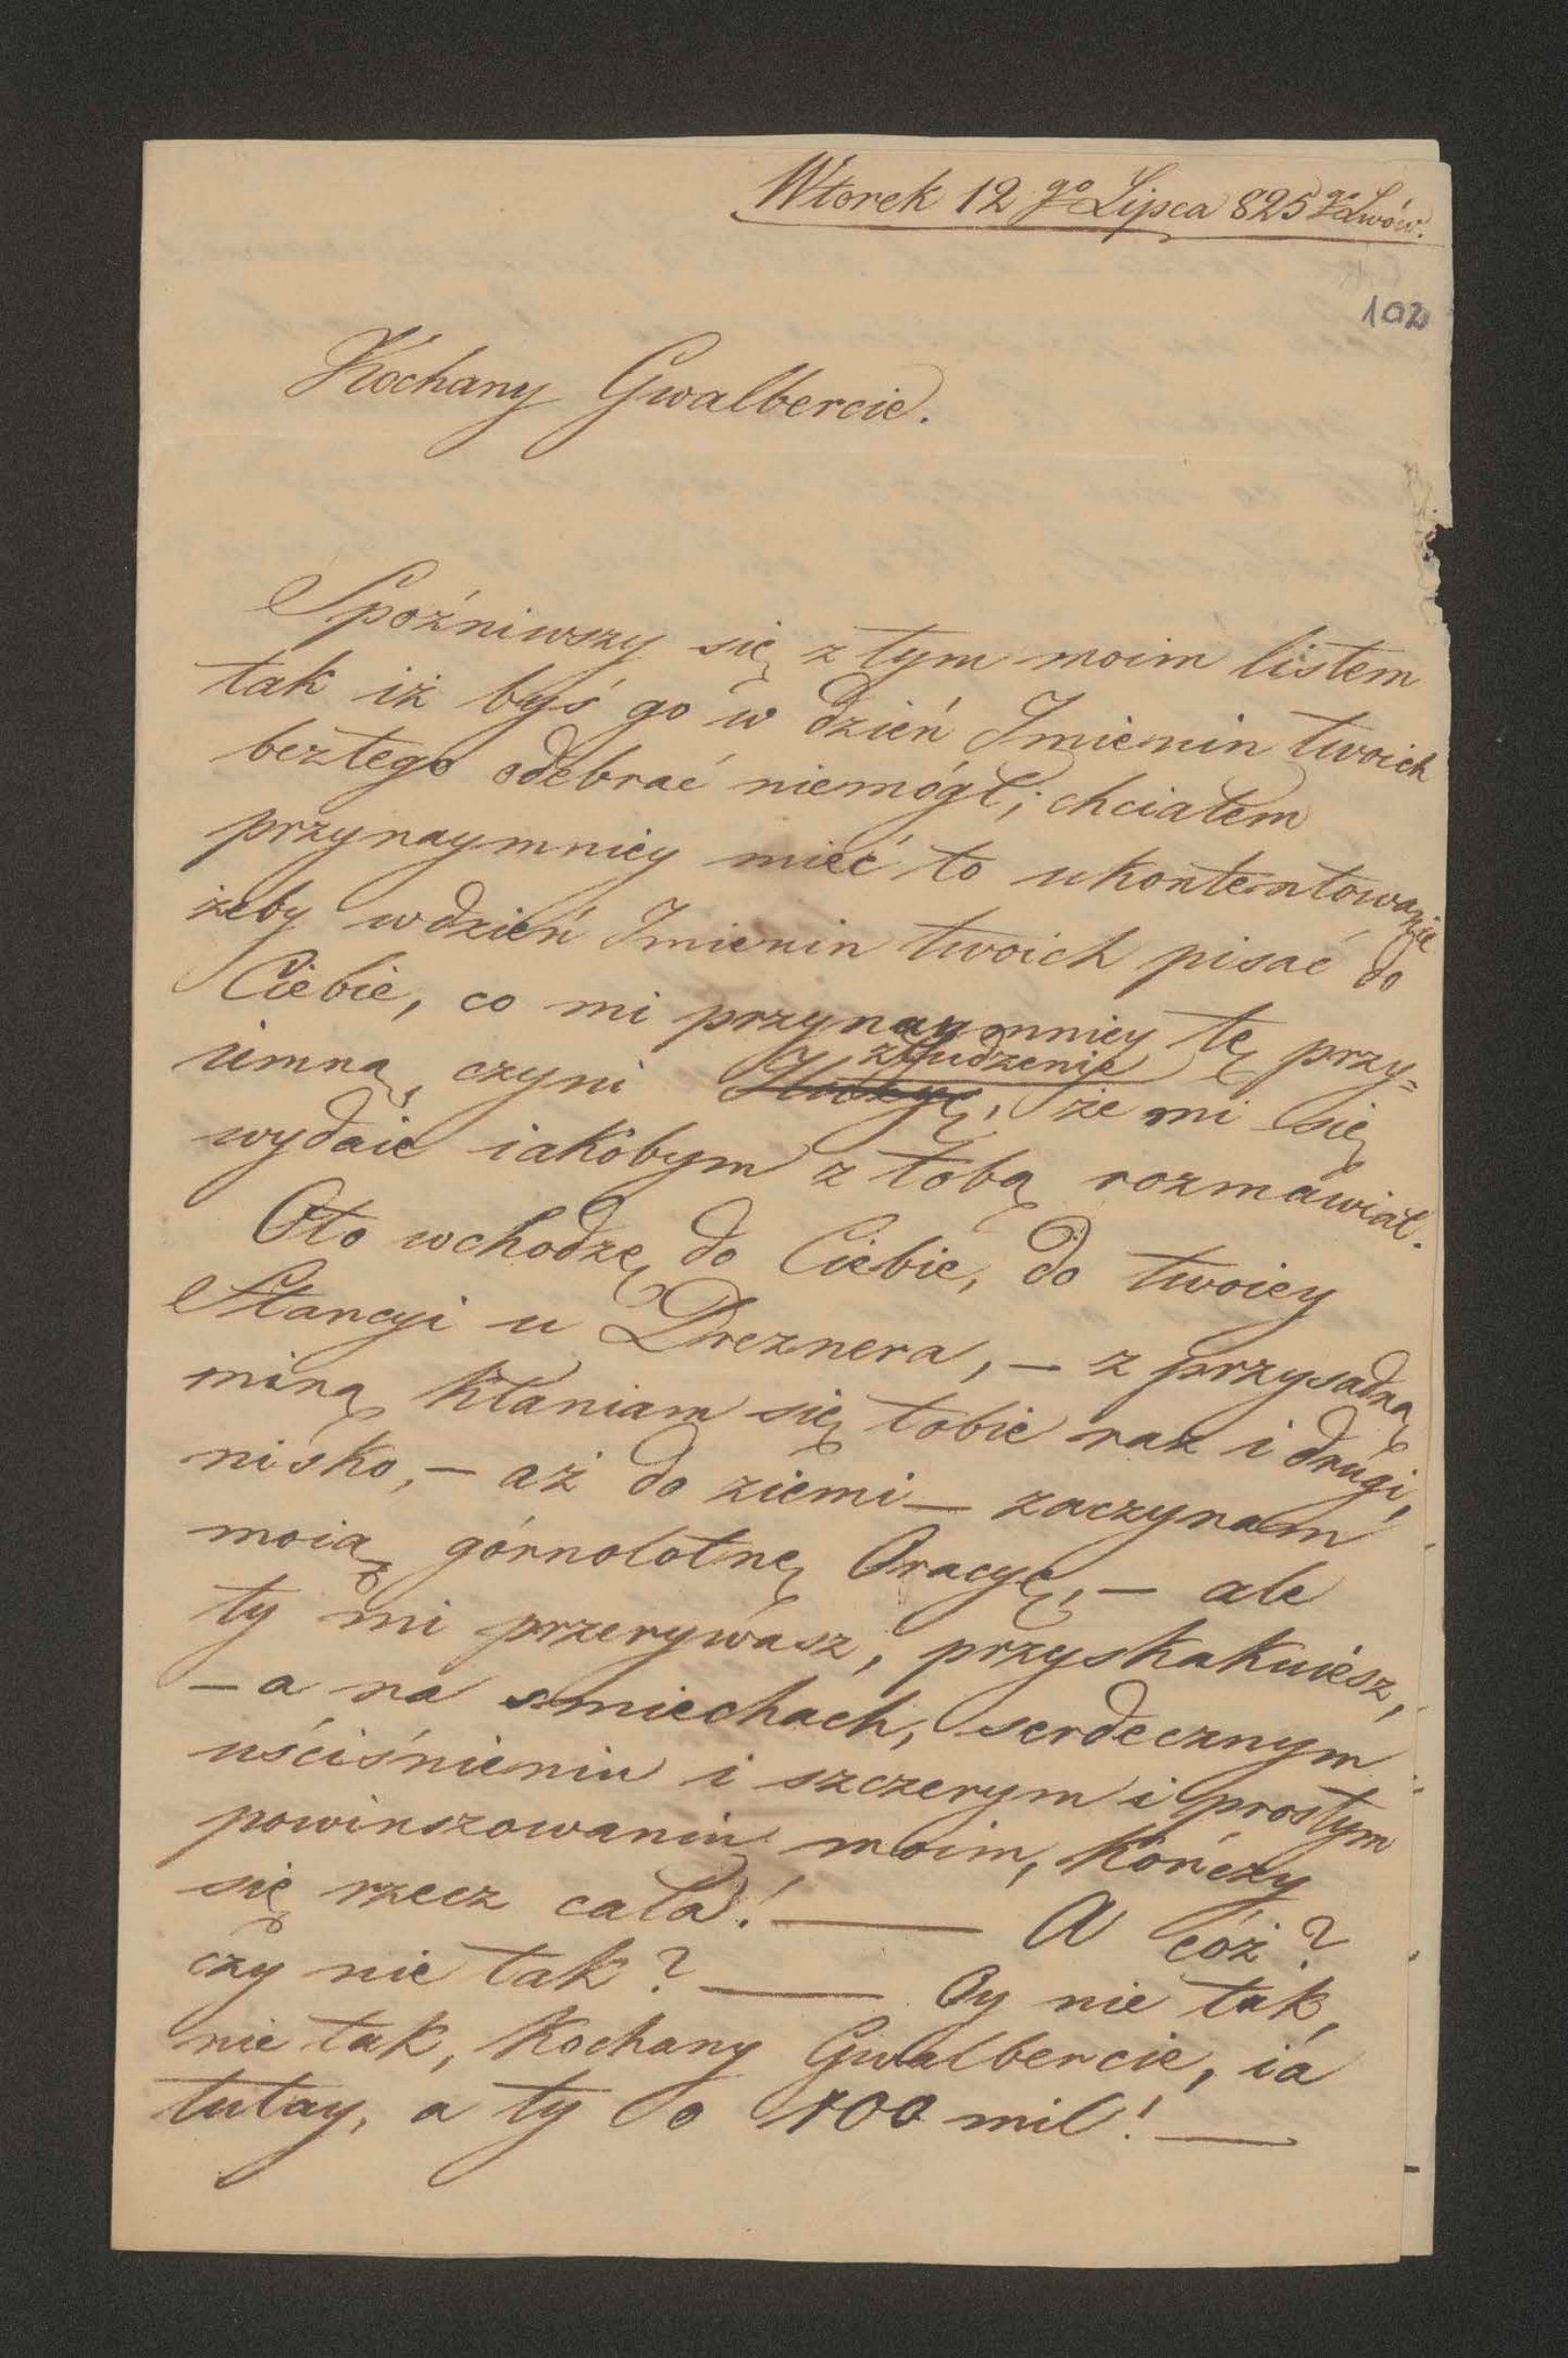 Wtorek 12 go Lipca 825 go Lwów.
102
Kochany Gwalbercie.
Spoźniwszy się z tym moim listem
tak iż byś go w dzień Imienin twoich
beztego odebrać niemógł; chciałem
przynaymniey mieć to ukontentowanie
żeby w dzień Imienin twoich pisać do
Ciebie, co mi przynaymniey tę przy=
złudzenie
iemną czyni że mi się
wydaie iakobym z tobą rozmawiał.
Oto wchodzę do Ciebie, do twoiey
Stancyi u Dreznera, – z przysadną
miną kłaniam się tobie raz i drugi,
nisko, – aż do ziemi – zaczynam
moią górnolotnę Oracyę, – ale
ty mi przerywasz, przyskakuiesz,
– a na smiechach, serdecznym
uściśnieniu i szczerym i prostym
powinszowaniu moim, kończy
się rzecz cała! — A cóż?
czy nie tak? — Oy nie tak,
nie tak, Kochany Gwalbercie, ia
tutay, a ty o 100 mil! —